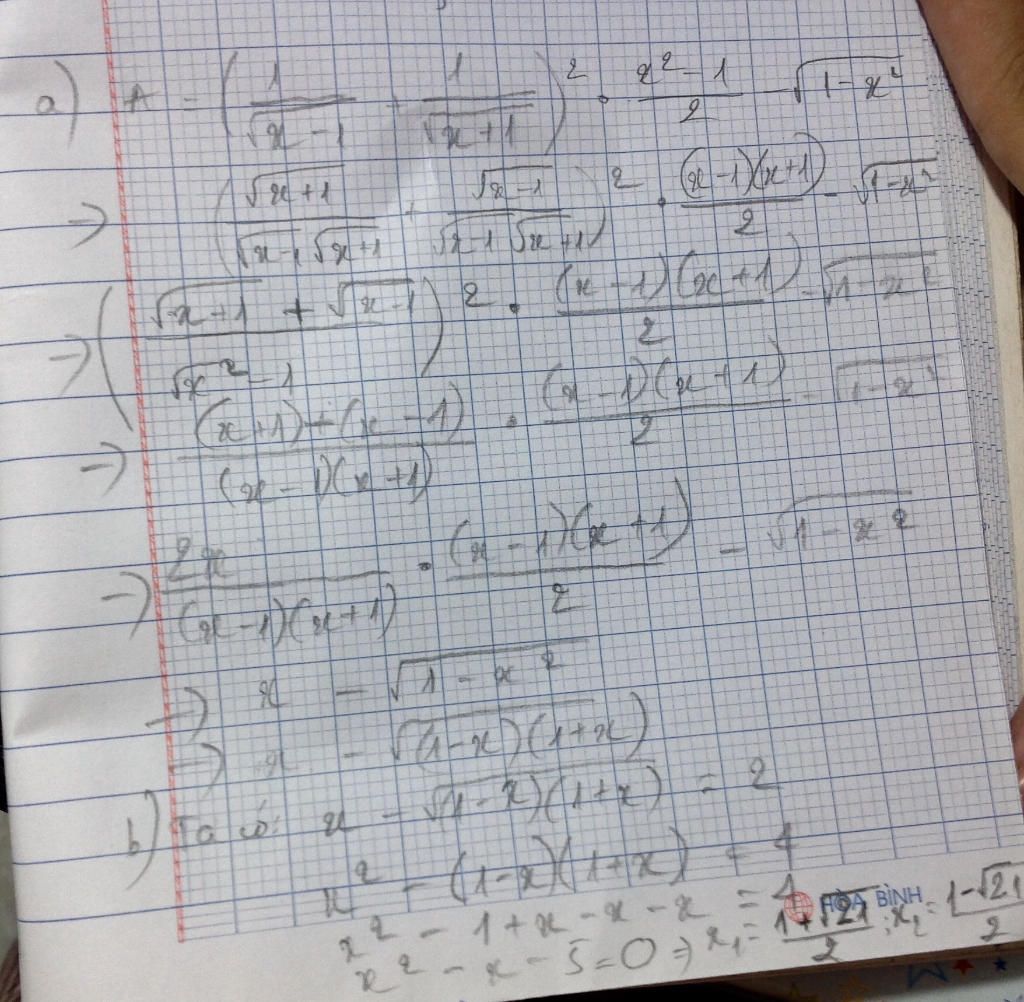 a) A = (1/√(x-1) + 1/√(x+1))² . (x²-1)/2 - √(1-x²)
→ (√(x+1)/(√(x-1) √(x+1)) + √(x-1)/(√(x-1) √(x+1)))² . (x-1)(x+1)/2 - √(1-x²)
→ ((√(x+1) + √(x-1))/√(x²-1))² . (x-1)(x+1)/2 - √(1-x²)
→ ((x+1)+(x-1))/((x-1)(x+1)) . (x-1)(x+1)/2 - √(1-x²)
→ 2x/((x-1)(x+1)) . (x-1)(x+1)/2 - √(1-x²)
→ x - √(1-x²)
→ x - √((1-x)(1+x))
b) Ta có: x - √((1-x)(1+x)) = 2
x² - (1-x)(1+x) = 4
x² - 1 + x - x - x = 4
x² - x - 5 = 0 ⇒ x₁ = (1+√21)/2 ; x₂ = (1-√21)/2
HÒA BÌNH